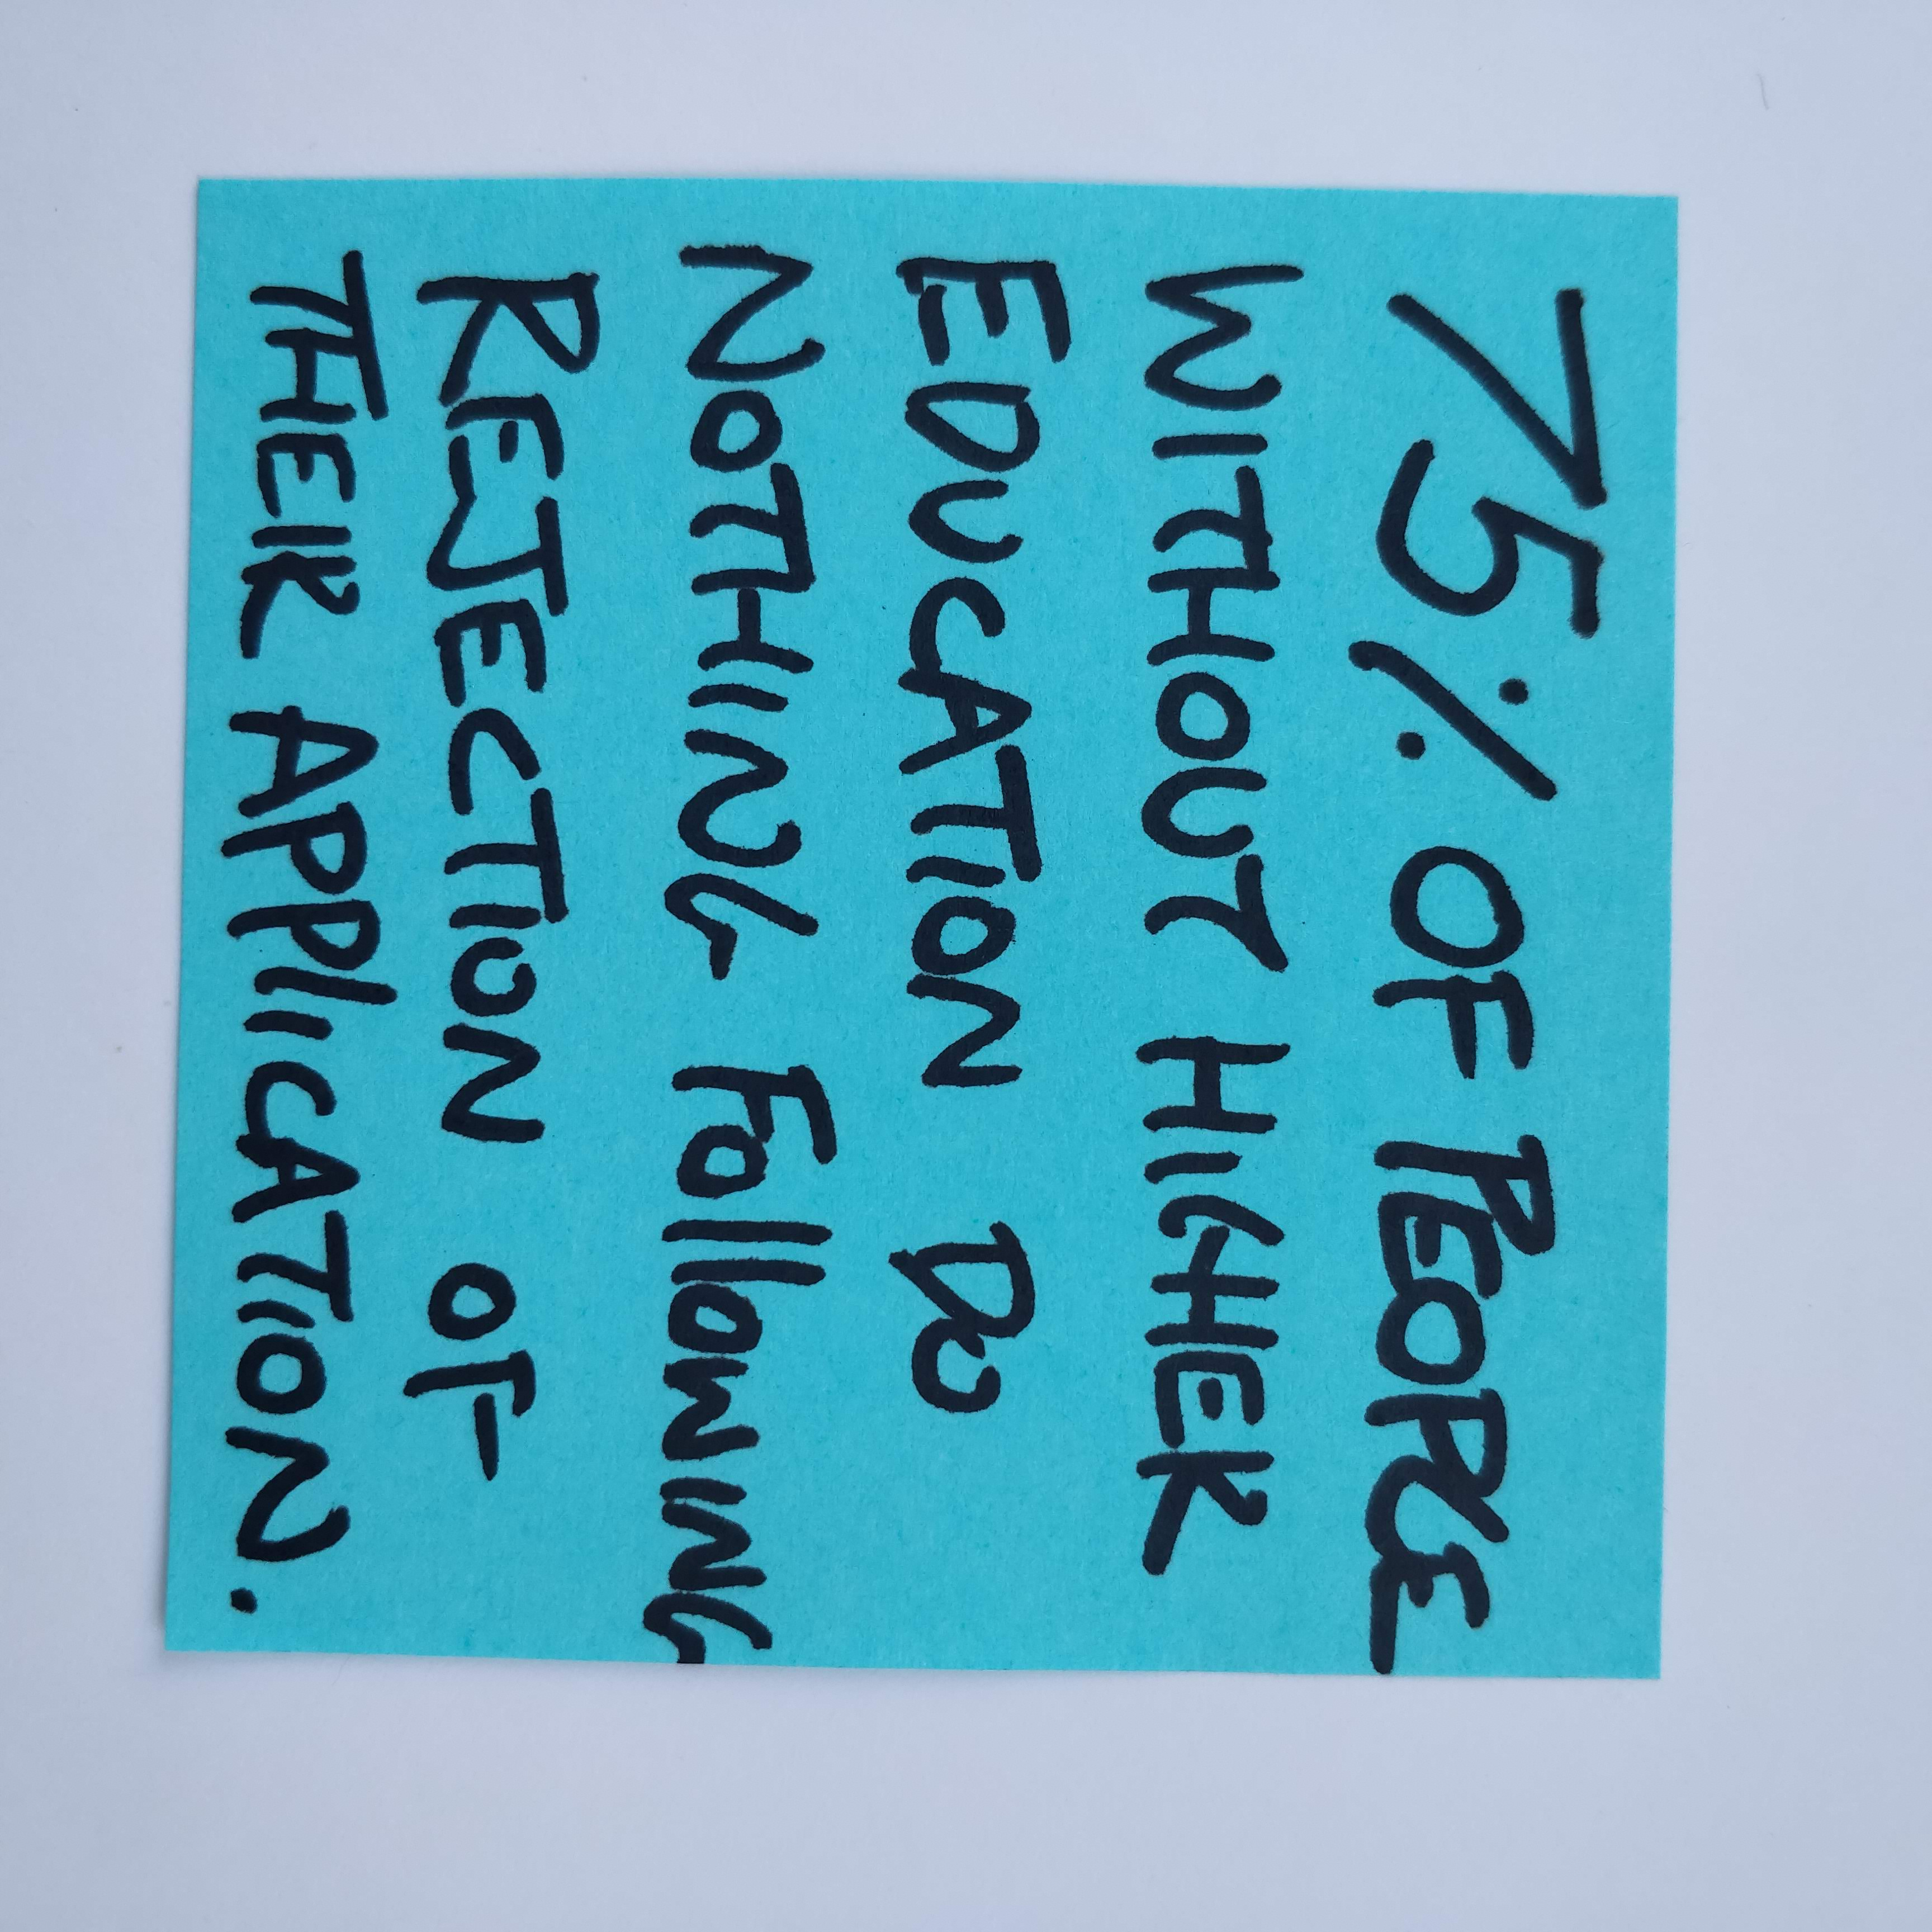 75% OF PEOPLE
WITHOUT HIGHER
EDUCATION DO
NOTHING FOllOWING
REJECTION OF
THEIR APPlICATION.